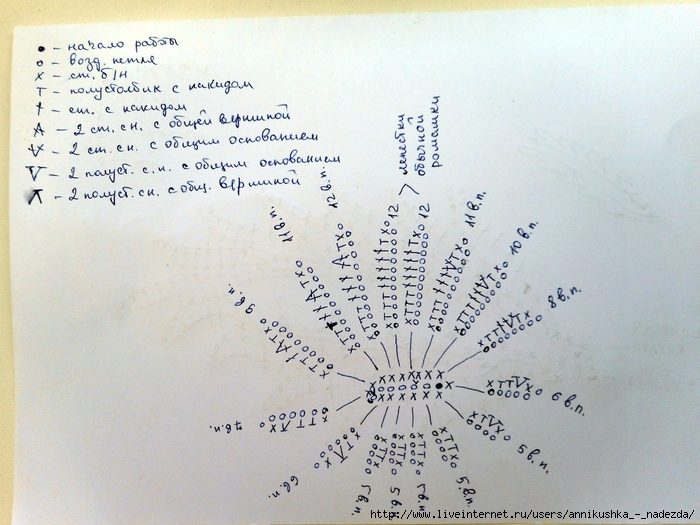 • – начало работы
о – возд. петля
х – ст. б/н
т – полустолбик с накидом
† – ст. с накидом
А – 2 ст. сн. с общей вершиной
V – 2 ст. сн. с общим основанием
V – 2 полуст. с.н. с общим основанием
Λ – 2 полуст. сн. с общ. вершиной
лепестки
обычной
ромашки
12 в.п.
12
12
11 в.п.
11 в.п.
10 в.п.
9 в.п.
8 в.п.
7 в.п.
6 в.п.
6 в.п.
5 в.п.
5 в.п.
5 в.п.
5 в.п.
5 в.п.
http://www.liveinternet.ru/users/annikushka_-_nadezda/